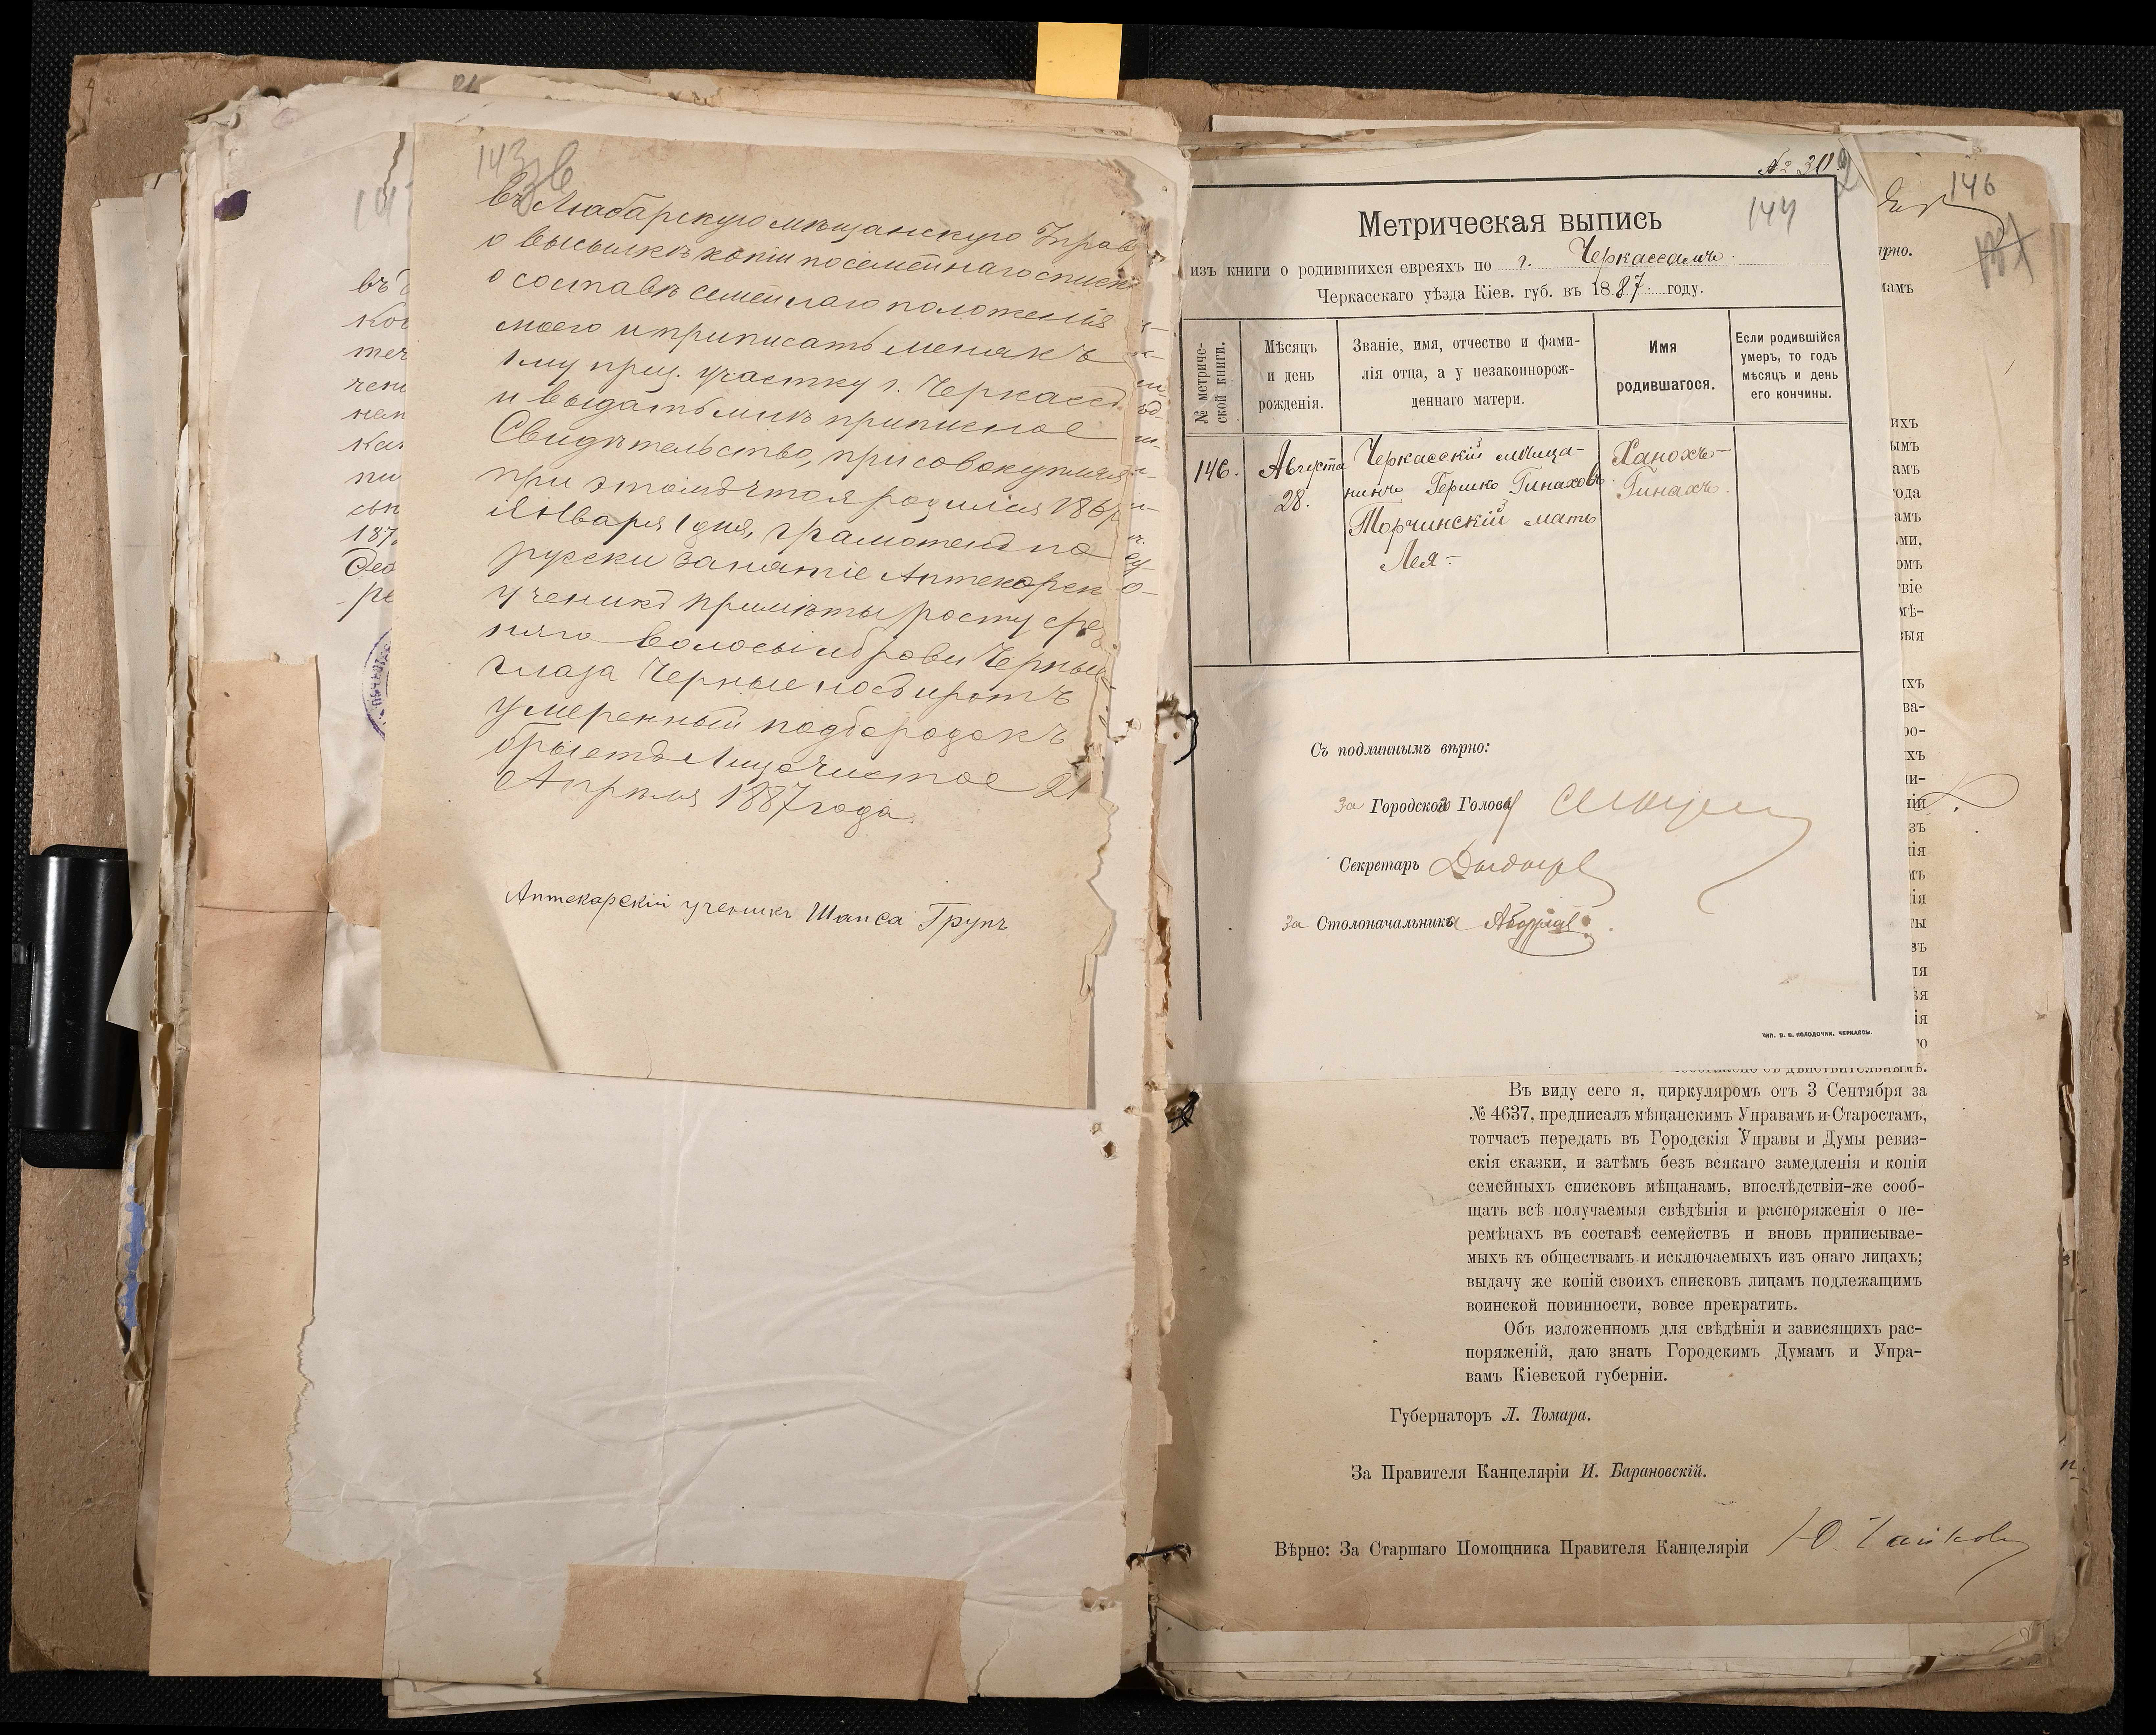 143 об
въ Любарскую мѣщанскую Управу
о высылкѣ копіи посемейнаго списка
о составѣ семейнаго положенія
моего и приписать меня къ
1му приз. участку г. Черкассъ
и выдать мнѣ приписное
Свидѣтельство, присовокупляя
при этомъ что я родился 186
Января 1 дня, грамотенъ по
русски занятіе Аптекарск
ученикъ примѣты росту сред
няго волосы и брови Черные
глаза Черные носъ и ротъ
умеренный подбородокъ
брыетъ Лицо чистое 21
Апрѣля 1887 года
Аптекарскій ученикъ Шапса Групъ
въ
ког
теч
чені
нап
кач
пи
сын
187
Део
ре
№ 30
144
Метрическая выпись
изъ книги о родившихся евреяхъ по г. Черкассамъ.
Черкасскаго уѣзда Кіев. губ. въ 1887 году.
№ метриче-
ской книги.
Мѣсяцъ
и день
рожденія.
Званіе, имя, отчество и фами-
лія отца, а у незаконнорож-
деннаго матери.
Имя
родившагося.
Если родившійся
умеръ, то годъ
мѣсяцъ и день
его кончины.
146.
Августа
28.
Черкасскій мѣща-
нинъ Гершко Гинаховъ
Торчинскій мать
Лея-
Ханохъ-
Гинахъ.
Съ подлиннымъ вѣрно:
За Городского Головы
Секретарь
За Столоначальника
ТИП. В. В. КОЛОДОЧКИ, ЧЕРКАССЫ.
146
137
рно.
амъ
ихъ
ымъ
амъ
ода
амъ
ми,
омъ
віе
мѣ-
ыя
ва-
ро-
хъ
ди-
ніи
зъ
ія
ты
въ
ія
го
дѣйствительнымъ.
Въ виду сего я, циркуляромъ отъ 3 Сентября за
№ 4637, предписалъ мѣщанскимъ Управамъ и Старостамъ,
тотчасъ передать въ Городскія Управы и Думы ревиз-
скія сказки, и затѣмъ безъ всякаго замедленія и копіи
семейныхъ списковъ мѣщанамъ, впослѣдствіи-же сооб-
щать всѣ получаемыя свѣдѣнія и распоряженія о пе-
ремѣнахъ въ составѣ семействъ и вновь приписывае-
мыхъ къ обществамъ и исключаемыхъ изъ онаго лицахъ;
выдачу же копій своихъ списковъ лицамъ подлежащимъ
воинской повинности, вовсе прекратить.
Объ изложенномъ для свѣдѣнія и зависящихъ рас-
поряженій, даю знать Городскимъ Думамъ и Упра-
вамъ Кіевской губерніи.
Губернаторъ Л. Томара.
За Правителя Канцеляріи И. Барановскій.
Вѣрно: За Старшаго Помощника Правителя Канцеляріи